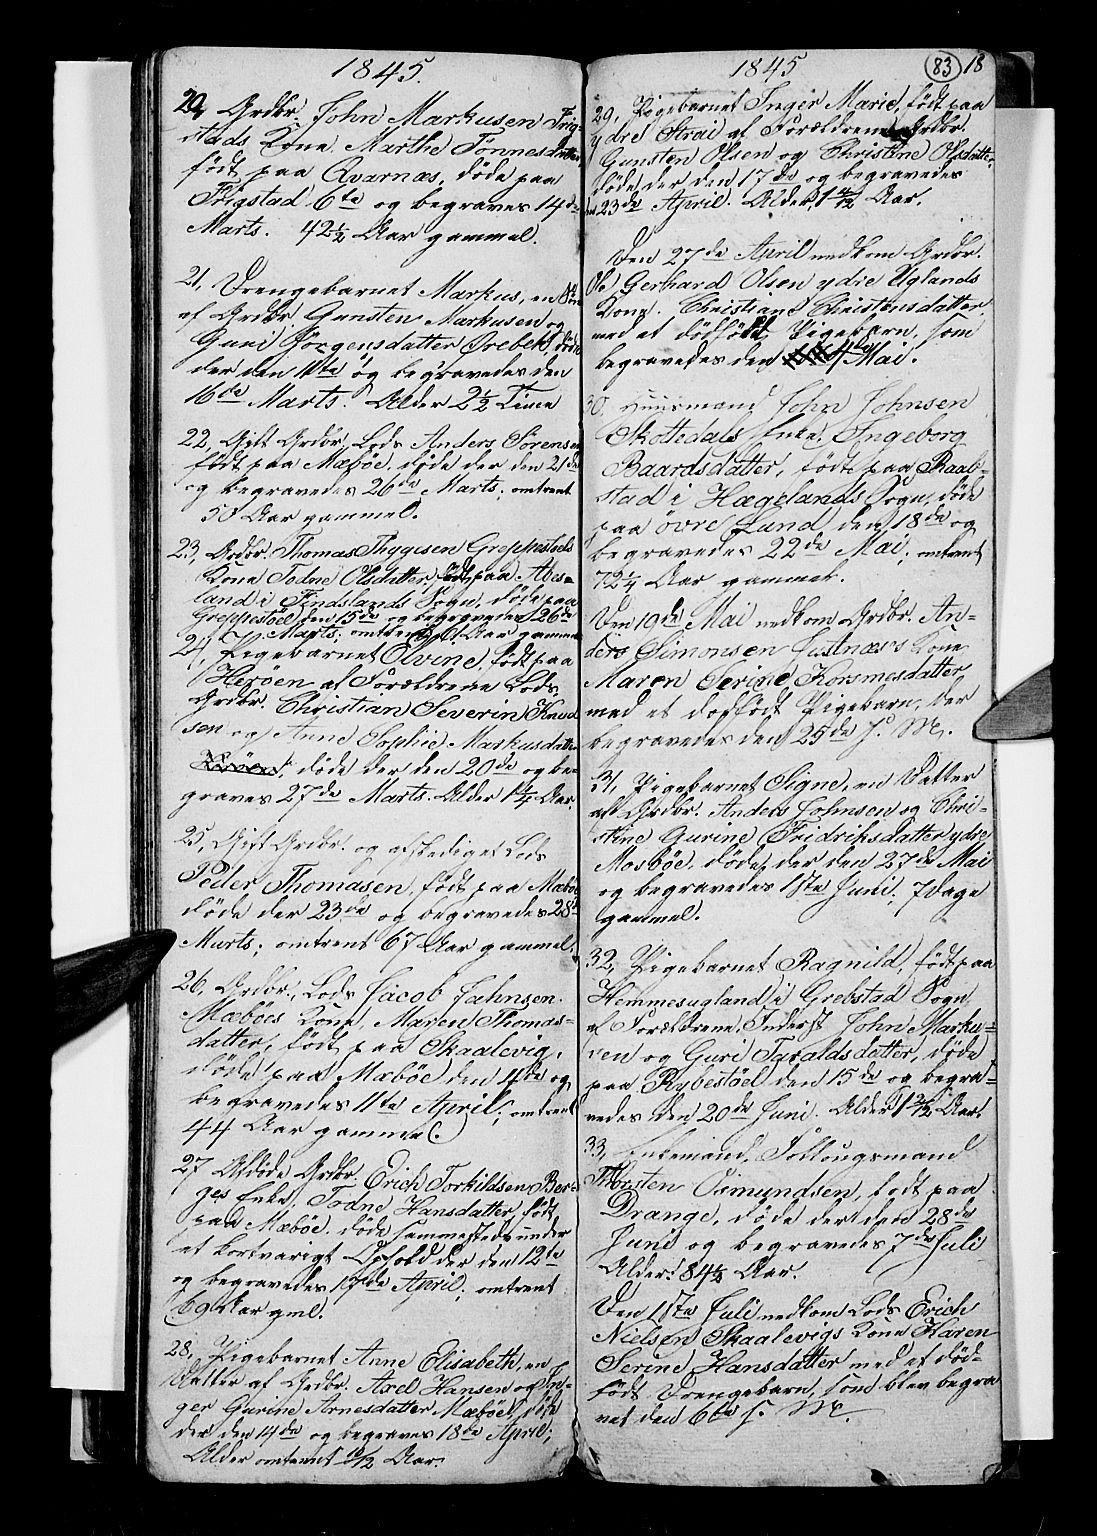 1845.
20, Grdbr. John Markusen Frig-
stads Kone Marthe Tønnesdatter
født paa Qvarnæs, døde paa
Frigstad 6te og begraves 14de
Marts. 42½ Aar gammel.
21, Drengebarnet Markus, en Søn
af Grdbr. Gunsten Markusen og
Guni Jørgensdatter Ørebek, døde
der den 11te og begravedes den
16de Marts. Alder 2½ Time
22, Gift Grdbr. Lods Anders Sørensen
født paa Mæbøe, døde der den 21de
og begravedes 26de Marts, omtrent
50 Aar gammel.
23, Grdbr. Thomas Thygesen Greppestøls
Kone Todne Olsdatter, født paa Abes-
land i Findslands Sogn, døde paa
Greppestøel den 15de og begravedes 26de
Marts; omtrent Aar gammel
24, Pigebarnet Olvine, født paa
Herøen af Forældrene Lods
Grdbr. Christian Severin Knud
sen og Anne Sophie Markusdatter
døde der den 20de og be-
graves 27de Marts. Alder 1¼ Aar.
25, Gift Grdbr. og afskediget Lods
Peder Thomasen, født paa Mæbøe
døde der 23de og begravedes 28de
Marts; omtrent 67 Aar gammel.
26, Grdbr., Lods Jacob Jahnsen
Mæbøes Kone, Maren Thomas-
datter, født paa Skaalevig,
døde paa Mæbøe den 4de og
begravedes 11te April; omtrent
44 Aar gammel.
27 Afdøde Grdbr. Erich Torkildsen Ber-
ges Enke, Todne Hansdatter, født
paa Mæbøe, døde sammesteds under
et kortvarigt Ophold der den 12te
og begravedes 17de April; omtrent
69 Aar gml.
28, Pigebarnet Anne Elisabeth, en
Datter af Grdbr. Axel Hansen og In-
ger Gurine Arnesdatter Mæbøe, døde
der den 14de og begraves 18de April;
Alder omtrent 10/12 Aar.
1845
83 18
29, Pigebarnet Inger Marie, født paa
ydre Strai af Forældrene Grdbr.
Gunsten Olsen og Christine Olsdatter,
døde der den 17de og begravedes
den 23de April. Alder, 1 4/12 Aar.
Den 27de April nedkom Grdbr.
Ole Gerhard Olsen ydre Uglands
Kone. Christiane Christensdatter,
med et dødfødt Pigebarn, som
begravedes den 4de Mai.
30. Huusmand John Johnsen
Skottedals Enke. Ingeborg
Baardsdatter, født paa Raab-
stad i Hægelands Sogn, døde
paa øvre Lund den 18de og
begravedes 22de Mai; omtrent
72¼ Aar gammel.
Den 19de Mai nedkom Grdbr. An-
ders Simonsen Justnæs's Kone
Maren Serine Korsmesdatter,
med et dødfødt Pigebarn, der
begravedes den 25de s. M.
31, Pigebarnet Signe, en Datter
af Grdbr. Anders Johnsen og Chri-
stine Gurine Fridriksdatter ydre
Mosbøe, døde der den 27de Mai
og begravedes 1ste Juni; 7 Dage
gammel.
32, Pigebarnet Ragnild, født paa
Hemmesugland i Grebstad Sogn
af Forældrene, Inderst John Marku-
sen og Guri Taraldsdatter, døde
paa Rybestøel den 15de og begra-
vedes den 20de Juni. Alder 1 3/12 Aar.
33, Enkemand, Follougsmand
Thorsten Osmundsen, født paa
Drange, døde der den 28de
Juni og begravedes 7de Juli
Alder: 84½ Aar.
Den 1ste Juli nedkom Lods Erich
Nielsen Skaalevigs Kone Karen
Serine Hansdatter med et død-
født Drengebarn, som blev begra
vet den 6te s. M.